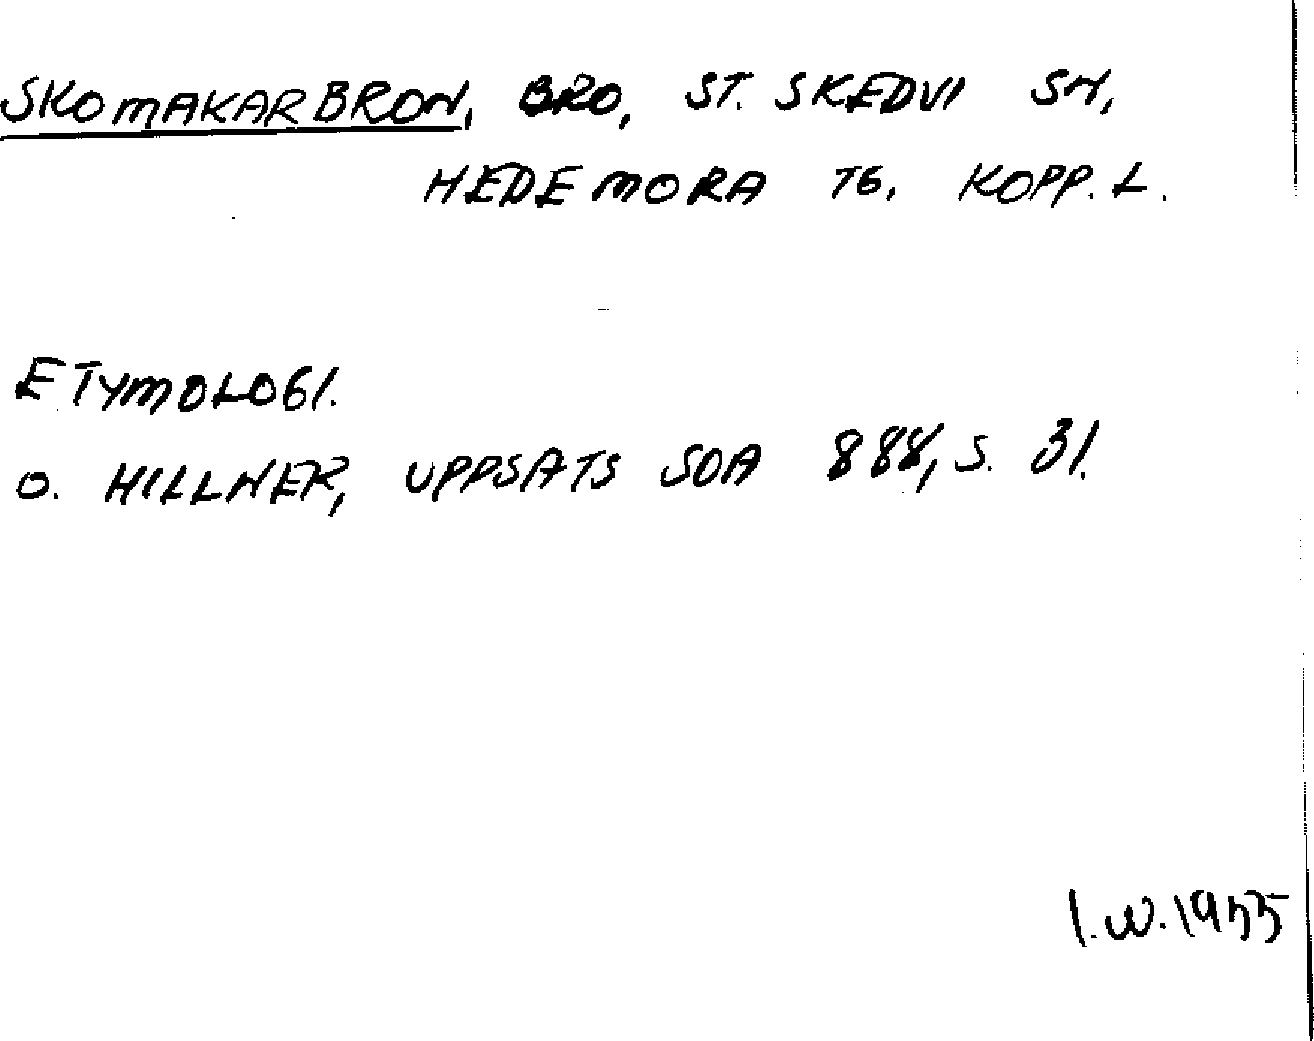 SKOMAKARBRON, BRO, ST. SKEDVI SN,
HEDEMORA TG, KOPP. L.
ETYMOLOGI.
O. HILLNER, UPPSATS SOA 888, S. 31.
I.W. 1955